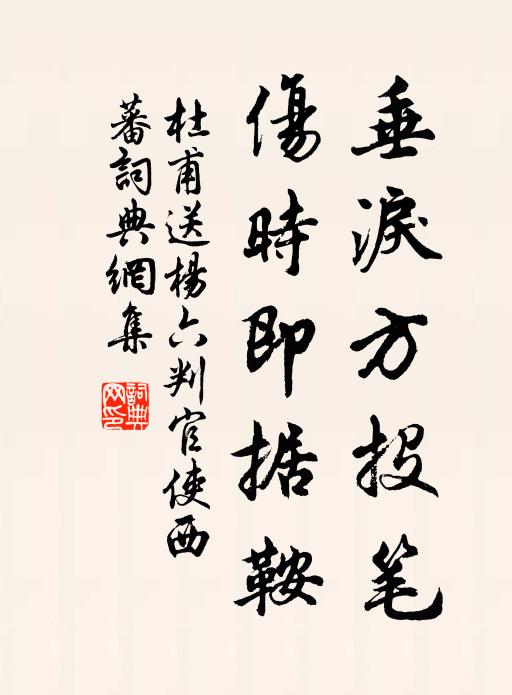 垂淚方投笔
傷時即据鞍
杜甫送楊六判官使西
蕃詞典網集
詞典网印